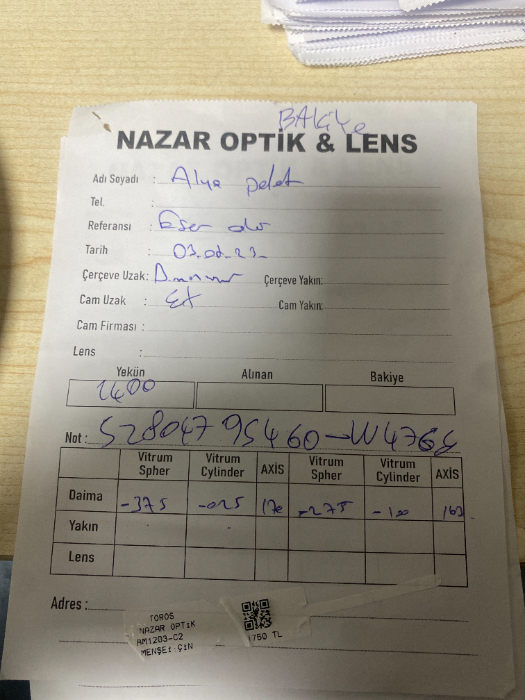 BAKiye
NAZAR OPTİK & LENS
Adı Soyadı : Alya polat
Tel. :
Referansı : Eser
Tarih :
Çerçeve Uzak: Çerçeve Yakın:
Cam Uzak : Cam Yakın:
Cam Firması :
Lens :
Yekün Alınan Bakiye
1400
Not : 52804795460-W476
Vitrum Spher Vitrum Cylinder AXİS Vitrum Spher Vitrum Cylinder AXİS
Daima -375 -025 -275 -100
Yakın
Lens
Adres :
TOROS
NAZAR OPTiK
AM1203-C2 1750 TL
MENŞEi:ÇiN